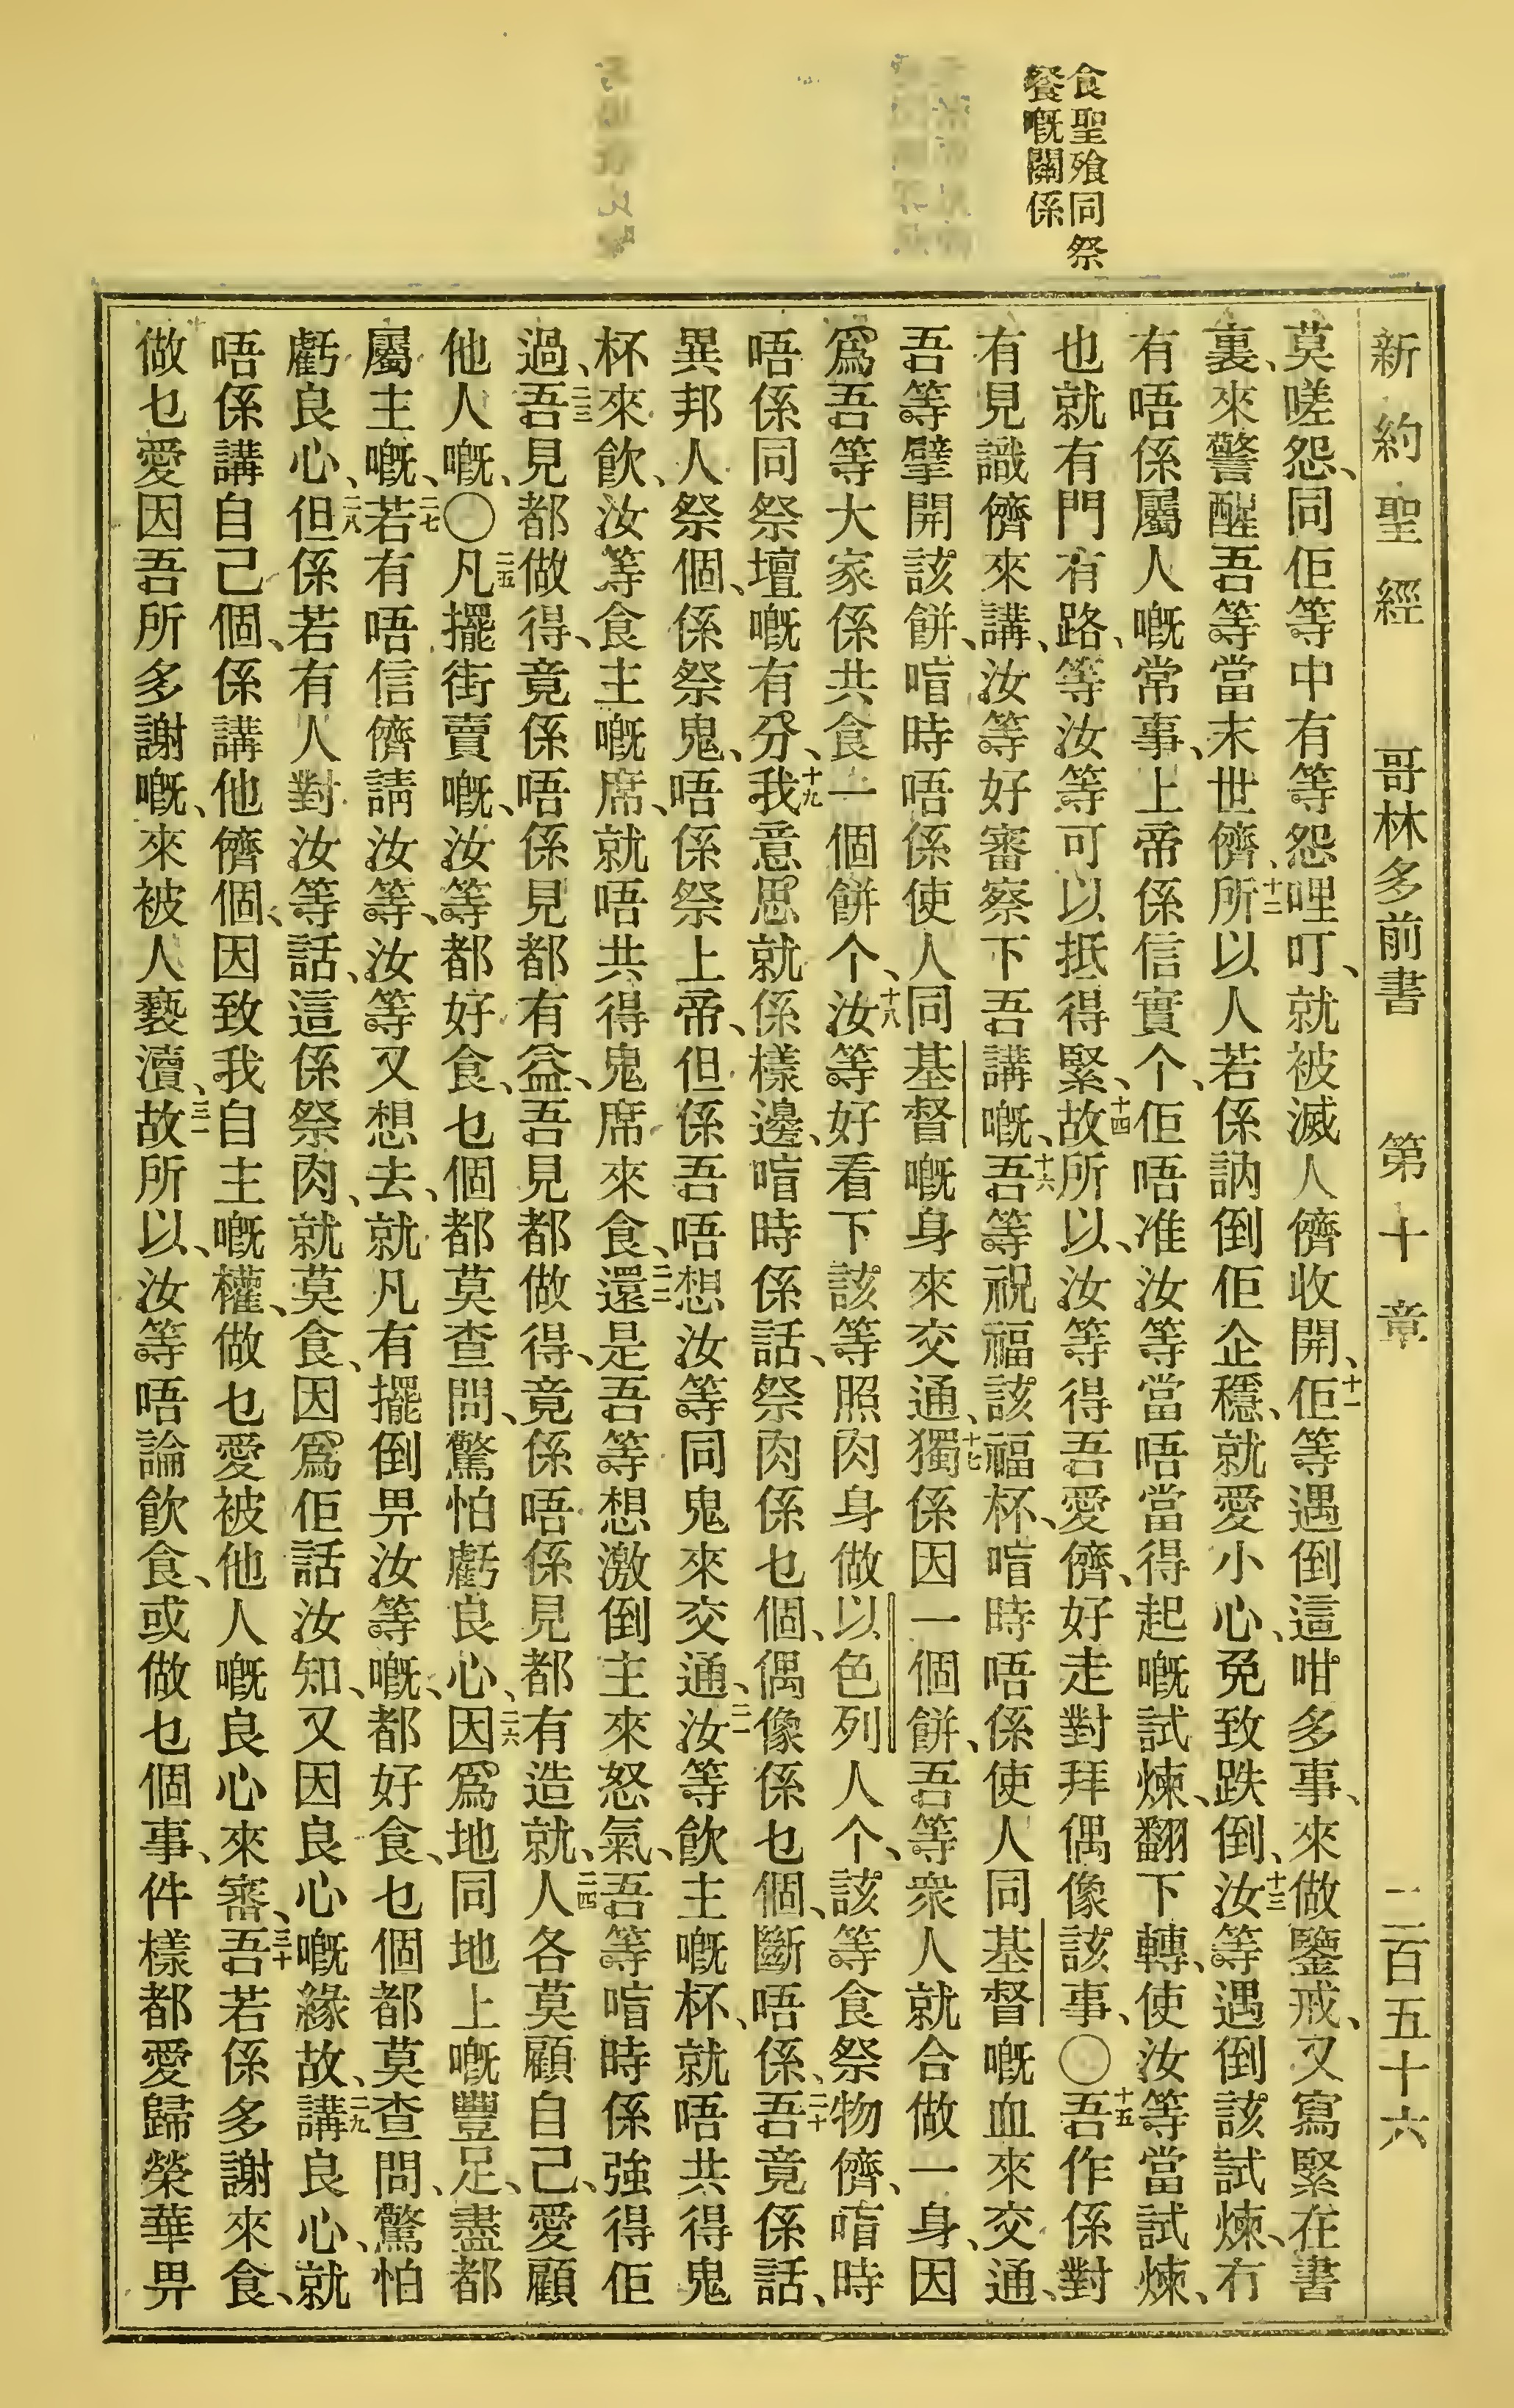 食聖飱同祭
餐嘅關係
新約聖經 哥林多前書 第十章 二百五十六
莫嗟怨、同佢等中有等怨哩叮、就被滅人儕收開、十一佢等遇倒這咁多事、來做鑒戒、又寫緊在書
裏、來警醒吾等當末世儕、十二所以人若係訥倒佢企穩、就愛小心、免致跌倒、十三汝等遇倒該試煉、冇
有唔係屬人嘅常事、上帝係信實个、佢唔准汝等當唔當得起嘅試煉、翻下轉、使汝等當試煉、
也就有門有路、等汝等可以抵得緊、十四故所以、汝等得吾愛儕、好走對拜偶像該事、〇十五吾作係對
有見識儕來講、汝等好審察下吾講嘅、十六吾等祝福該福杯、喑時唔係使人同基督嘅血來交通、
吾等擘開該餅、喑時唔係使人同基督嘅身來交通、十七獨係因一個餅、吾等衆人就合做一身、因
爲吾等大家係共食一個餅个、十八汝等好看下該等照肉身做以色列人个、該等食祭物儕、喑時
唔係同祭壇嘅有分、十九我意思就係樣邊、喑時係話、祭肉係乜個、偶像係乜個、斷唔係、二十吾竟係話、
異邦人祭個、係祭鬼、唔係祭上帝、但係吾唔想汝等同鬼來交通、二一汝等飲主嘅杯、就唔共得鬼
杯來飲、汝等食主嘅席、就唔共得鬼席來食、二二還是吾等想激倒主來怒氣、吾等喑時係強得佢
過、二三吾見都做得、竟係唔係見都有益、吾見都做得、竟係唔係見都有造就、二四人各莫顧自己、愛顧
他人嘅、〇二五凡擺街賣嘅、汝等都好食、乜個都莫查問、驚怕虧良心、二六因爲地同地上嘅豐足、盡都
屬主嘅、二七若有唔信儕請汝等、汝等又想去、就凡有擺倒畀汝等嘅、都好食、乜個都莫查問、驚怕
虧良心、二八但係若有人對汝等話、這係祭肉、就莫食、因爲佢話汝知、又因良心嘅緣故、二九講良心、就
唔係講自己個、係講他儕個、因致我自主嘅權、做乜愛被他人嘅良心來審、三十吾若係多謝來食、
做乜愛因吾所多謝嘅、來被人褻瀆、三一故所以、汝等唔論飲食、或做乜個事、件樣都愛歸榮華畀